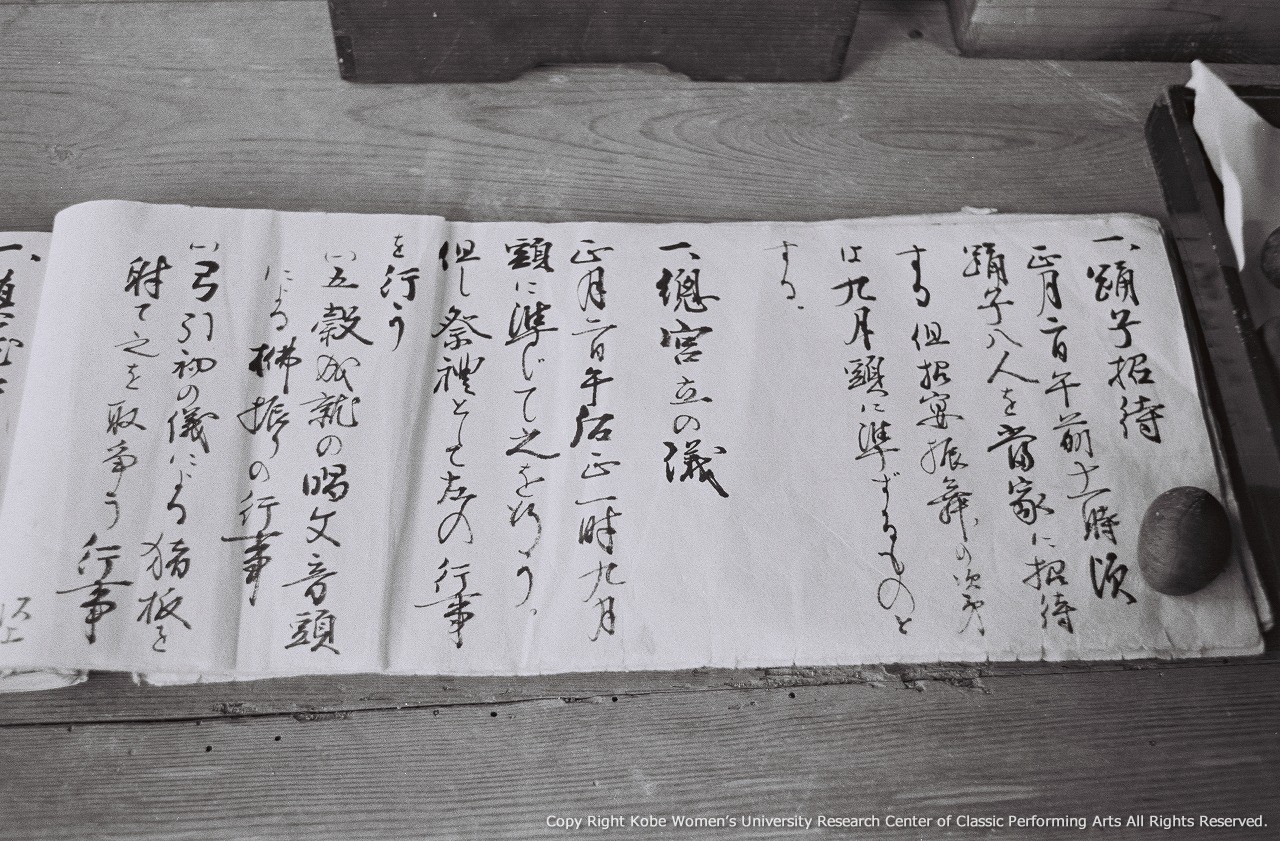 一、踊子招待
正月二日午前十一時頃
踊子八人を當家に招待
する 但招宴振舞の次第
は九月頭に準ずるものと
する、
一、總宮立の儀
正月二日午后正一時九月
頭に準じて之を行う、
但し祭禮として左の行事
を行う
(い)五穀成就の唱文音頭
による 振りの行事
(い)弓引初の儀による 猪板を
射て之を取争う行事
Copy Right Kobe Women's University Research Center of Classic Performing Arts All Rights Reserved.